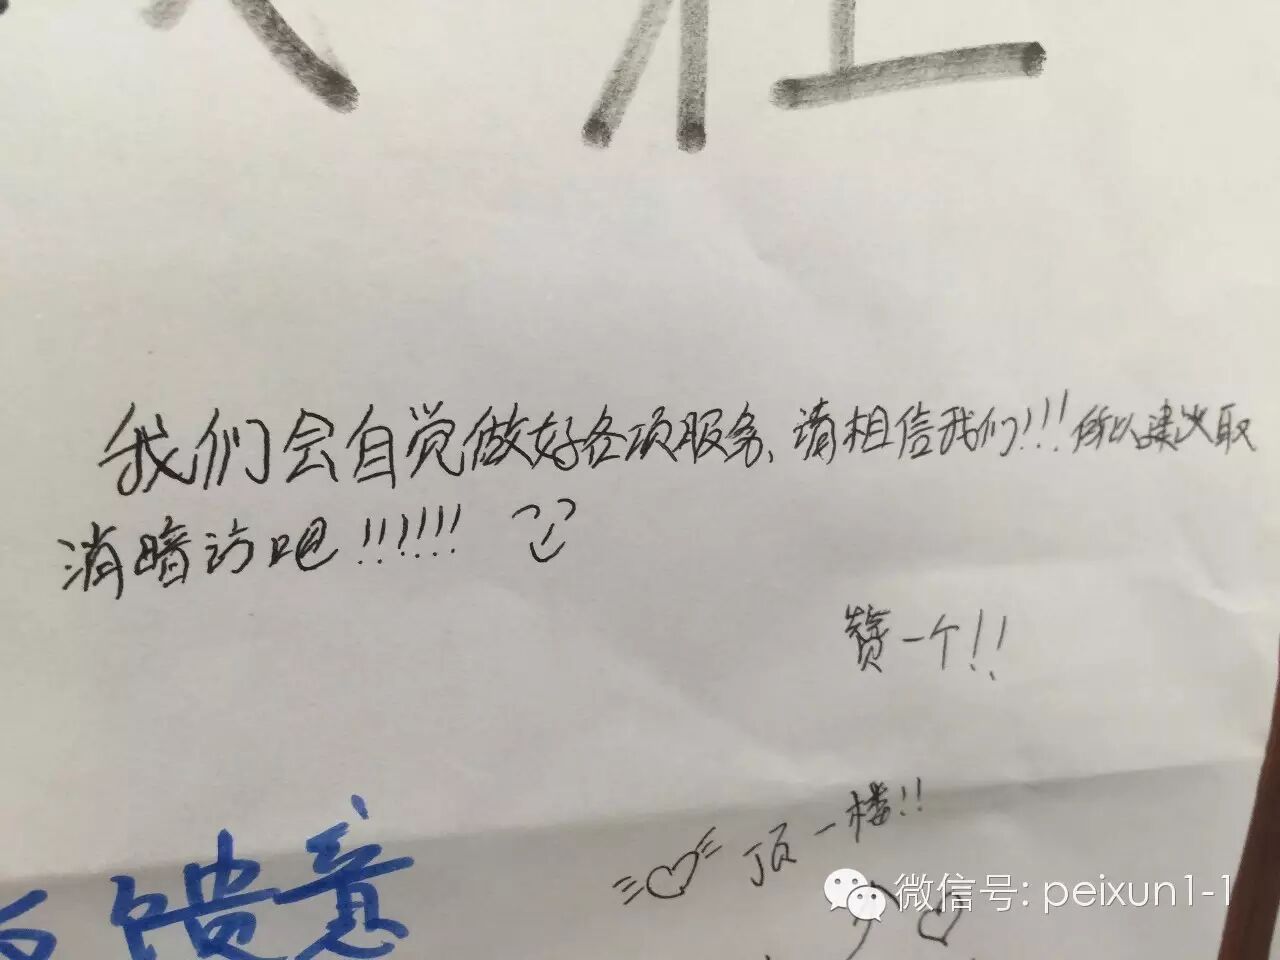 我们会自觉做好各项服务、请相信我们!!!所以建议取
消暗访吧!!!!!!
赞一个!!
顶一楼!!
馈意
微信号: peixun1-1